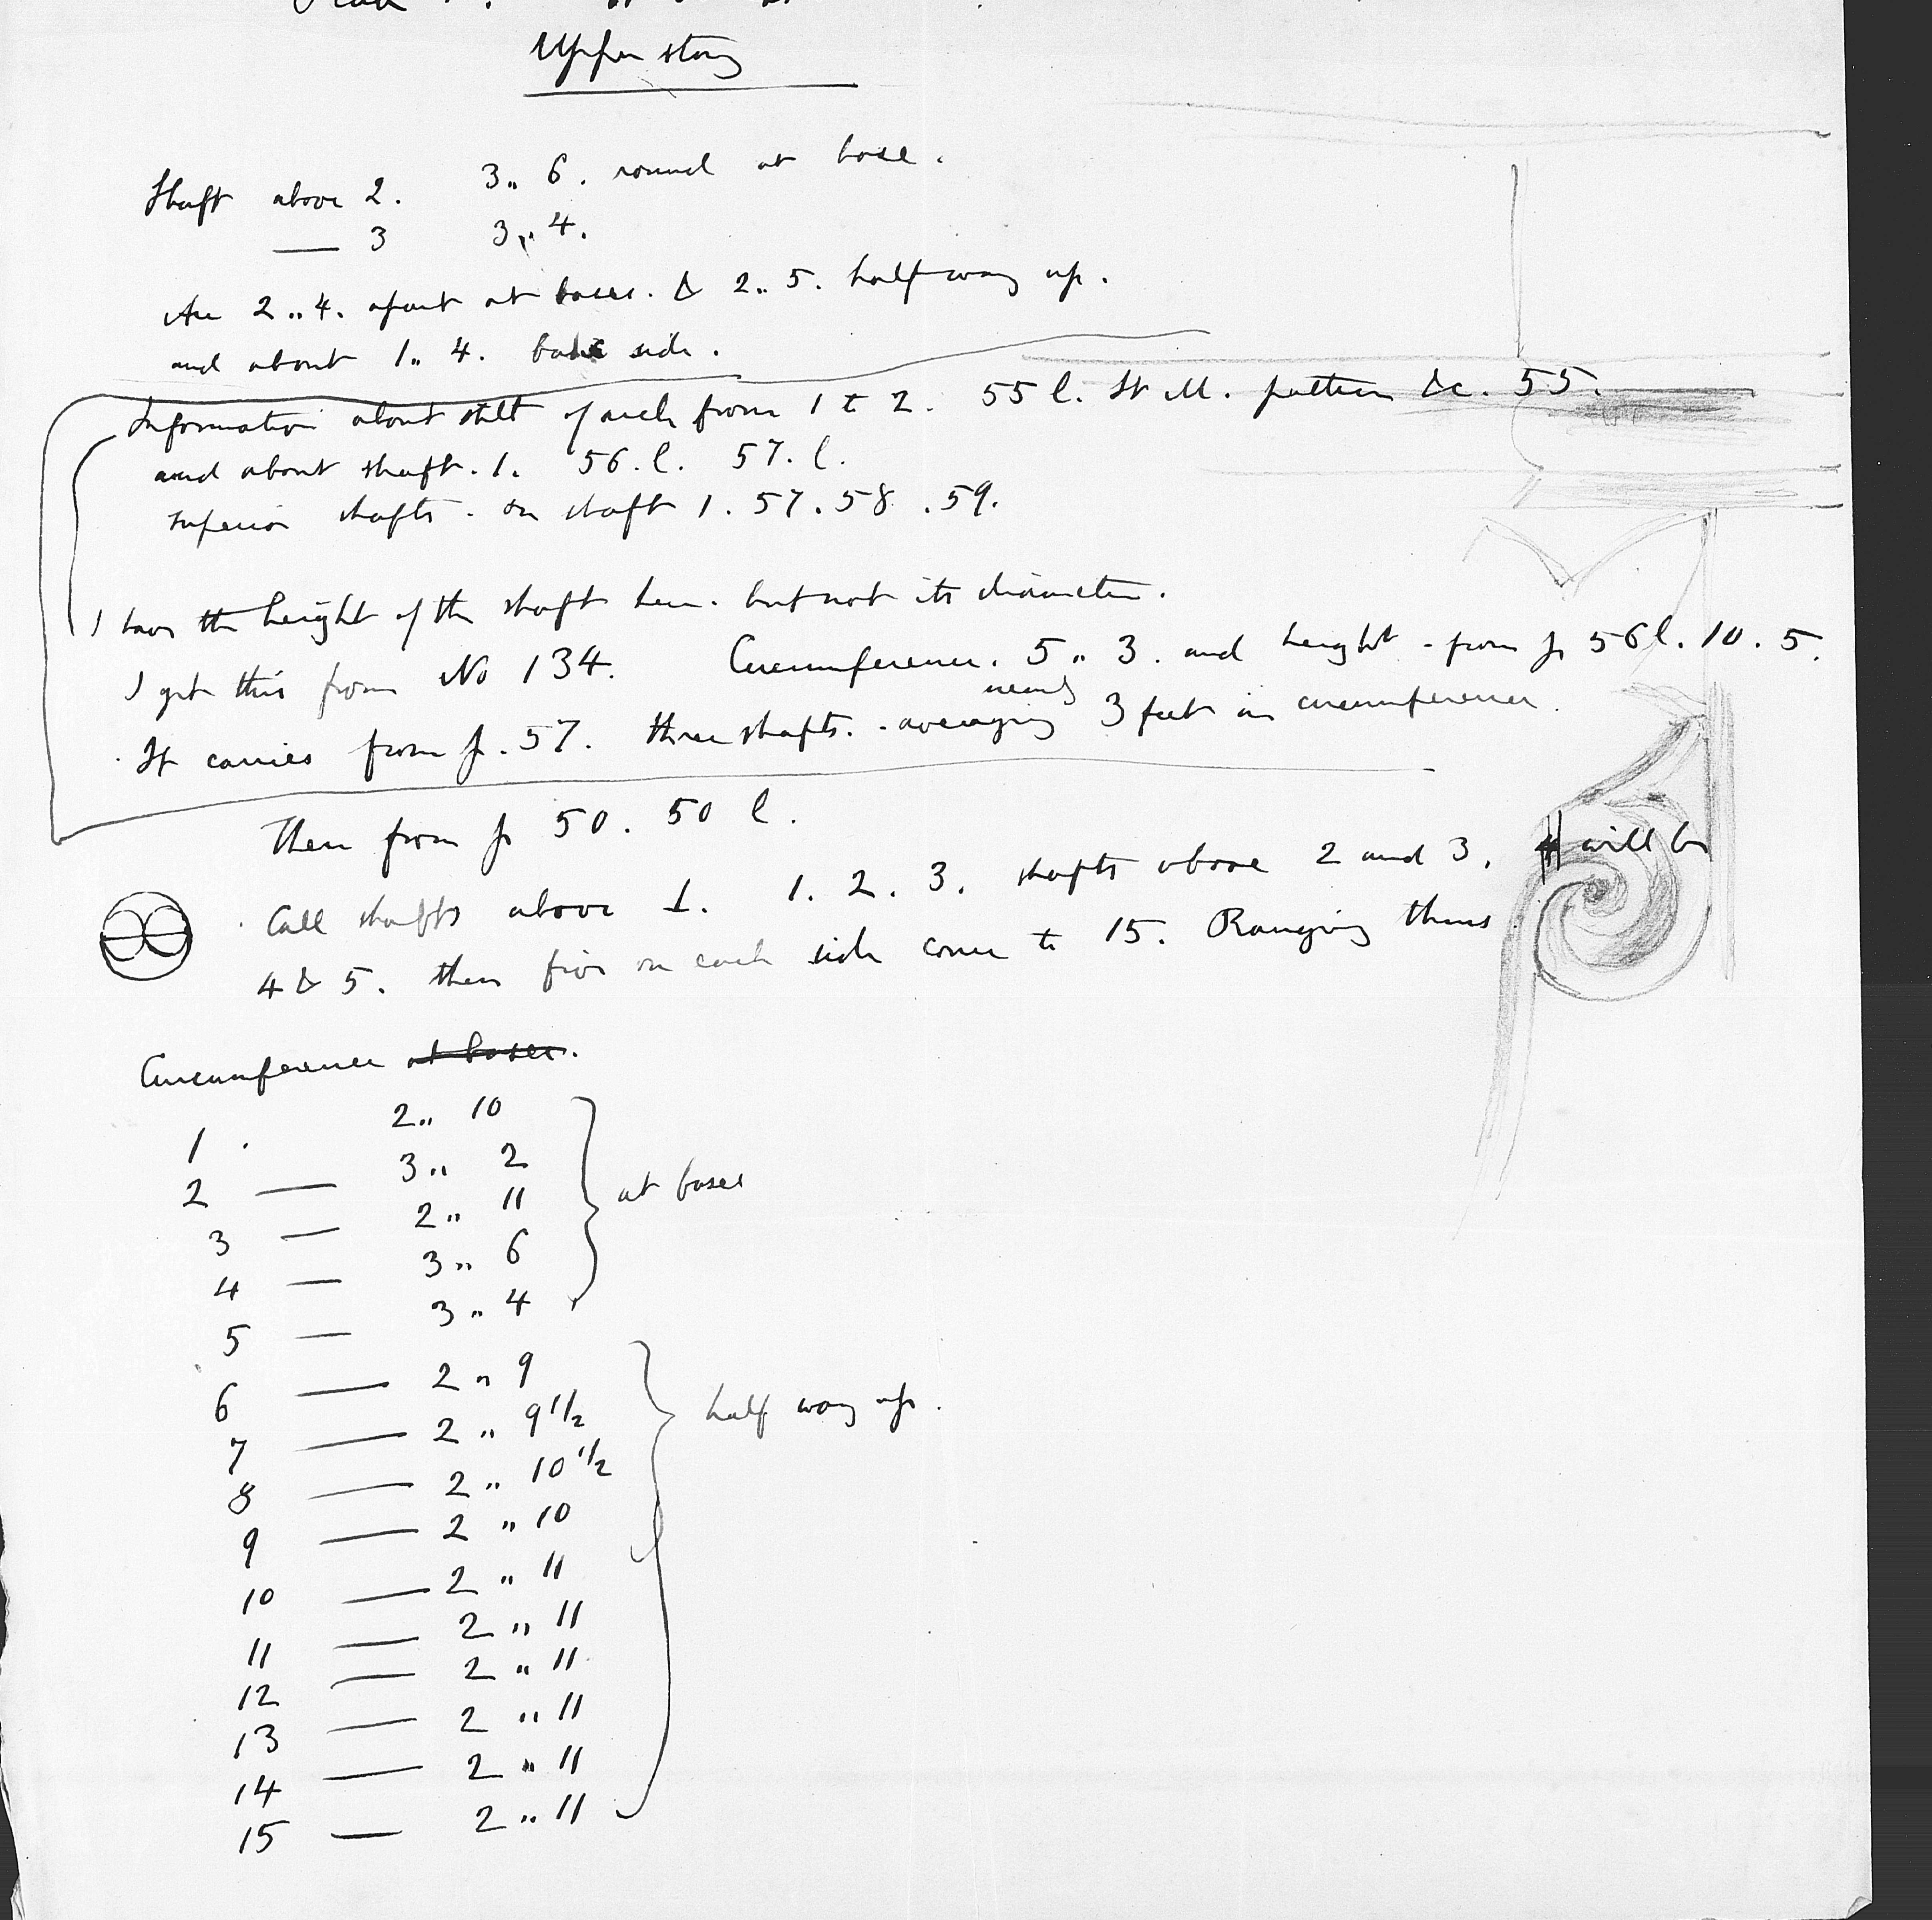 Upper story
Shaft above 2. 3„ 6. round at base.
— 3 3„ 4.
Are 2„ 4. apart at bases. & 2„ 5. half way up.
and about 1„ 4. side.
Information about stilt of arch from 1 to 2. 55 l. St M. pattern &c. 55.
and about shaft. 1. 56. l. 57. l.
superior shafts - on shaft 1. 57. 58. 59.
I have the height of the shaft here. but not its diameter.
I get this from No 134. Circumference. 5„ 3. and height - from p 56 l. 10. 5.
nearly
It carries from p. 57. three shafts. - averaging 3 feet in circumference.
Then from p 50. 50 l.
Call shafts above 1. 1. 2. 3. shafts above 2 and 3. will be
4 & 5. then five on each side come to 15. Ranging thus.
Circumference at bases.
1. 2„ 10
2 — 3„ 2
3 — 2„ 11
4 — 3„ 6
5 — 3„ 4
at bases
6 — 2„ 9
7 — 2„ 9 1/2
8 — 2„ 10 1/2
9 — 2„ 10
10 — 2„ 11
11 — 2„ 11
12 — 2„ 11
13 — 2„ 11
14 — 2„ 11
15 — 2„ 11
half way up.